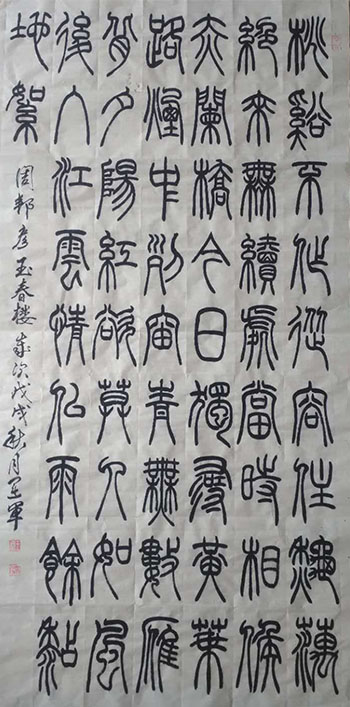 桃谿不作從容住秋藕
絕來無續處當時相候
赤闌橋今日獨尋黃葉
路煙中列岫青無數雁
背夕陽紅欲莫人如風
後入江雲情似雨餘黏
地絮
周邦彦玉春楼歲次戊戌秋月軍